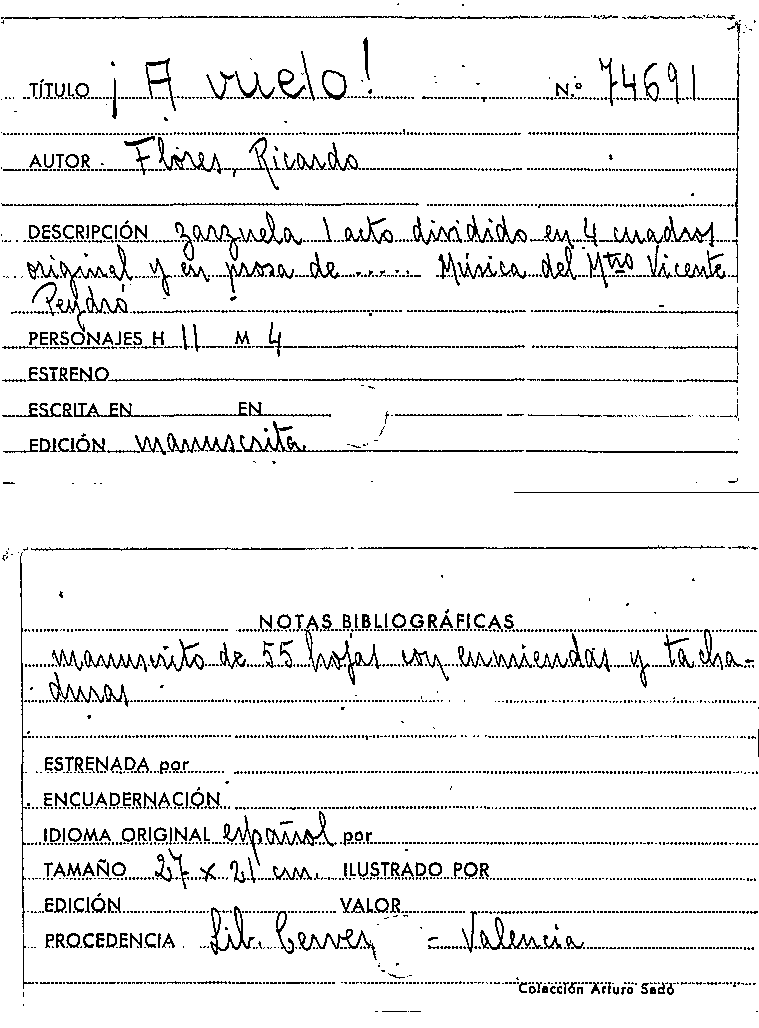 TÍTULO ¡A vuelo! N.º 74691
AUTOR. Flores, Ricardo
DESCRIPCIÓN zarzuela 1 acto dividido en 4 cuadros
original y en prosa de ..... Música del Mtro Vicente
Peydró
PERSONAJES H 11 M 4
ESTRENO
ESCRITA EN EN
EDICIÓN manuscrita
NOTAS BIBLIOGRÁFICAS
manuscrito de 55 hojas con enmiendas y tacha-
duras
ESTRENADA por
ENCUADERNACIÓN
IDIOMA ORIGINAL español por
TAMAÑO 27 x 21 cm. ILUSTRADO POR
EDICIÓN VALOR
PROCEDENCIA Lib. - Valencia
Colección Arturo Sedó